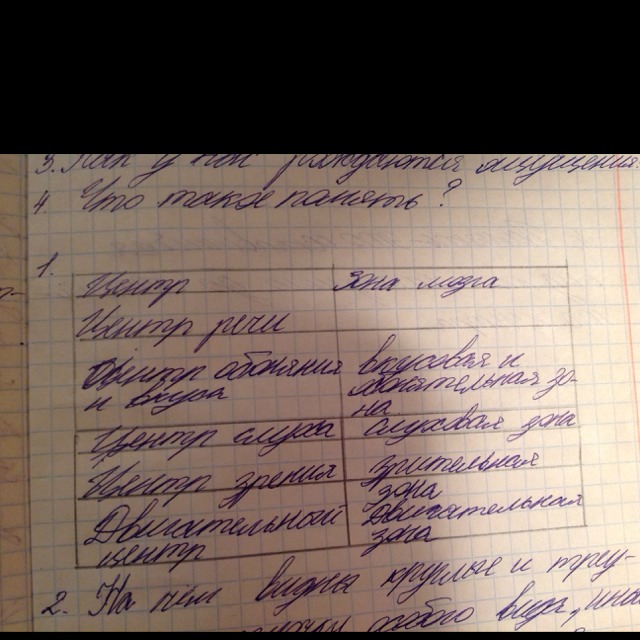 3. Как у нас рождаются ощущения.
4. Что такое память?
1.
Центр Зона мозга
Центр речи
Центр обоняния вкусовая и
и вкуса обонятельная зо-
на
Центр слуха слуховая зона
Центр зрения зрительная
зона
Двигательный Двигательная
центр зона
2. На нём видны круглые и треу-
особого вида,